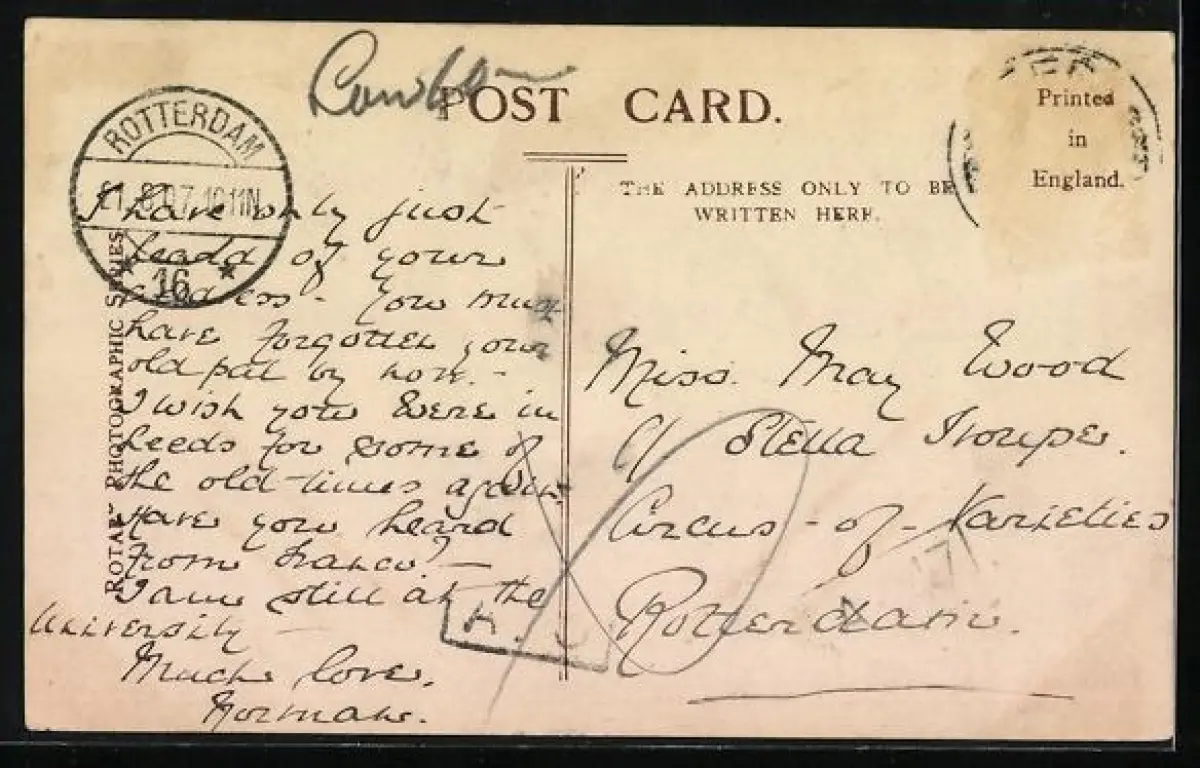 POST CARD.
ROTTERDAM
16
Printed
in
England.
THE ADDRESS ONLY TO BE
WRITTEN HERE.
ROTARY PHOTOGRAPHIC SERIES
I have only just
heard of your
address. You must
have forgotten your
old pal by now. -
I wish you were in
Leeds for some of
the old-times again.
Have you heard
from ? -
I am still at the
University -
Much love.
Norman.
Miss. May Wood
c/ Stella Troupe.
Circus - of - Varieties
Rotterdam.